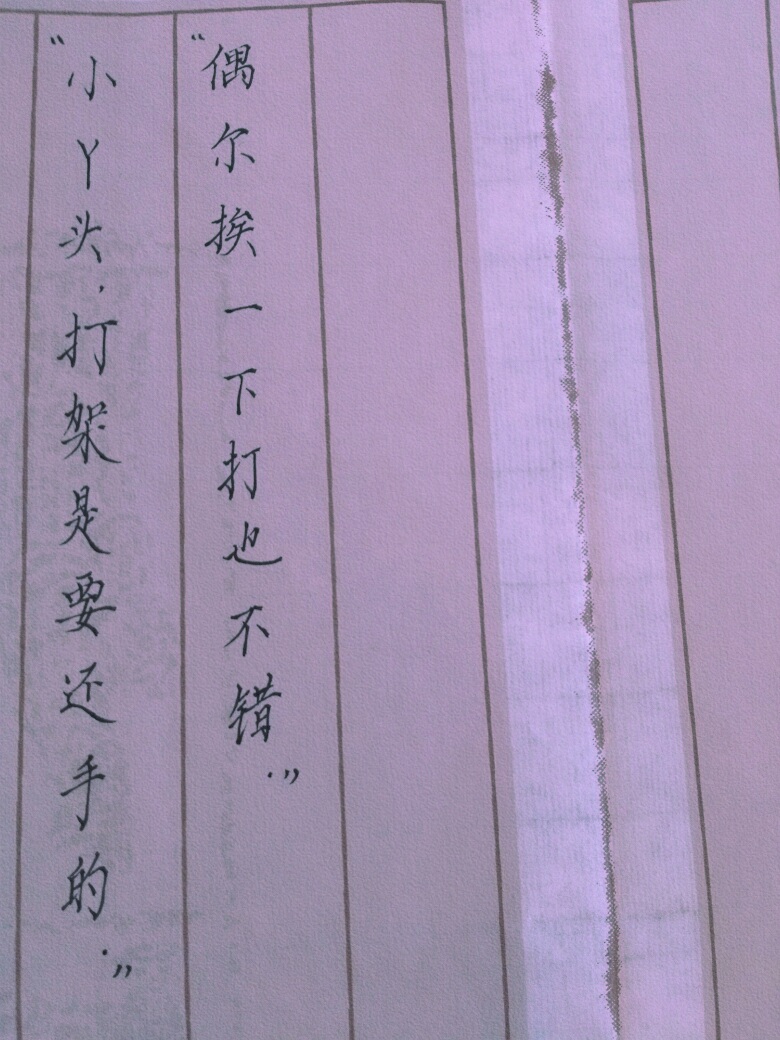 “偶尔挨一下打也不错.”
“小丫头,打架是要还手的.”